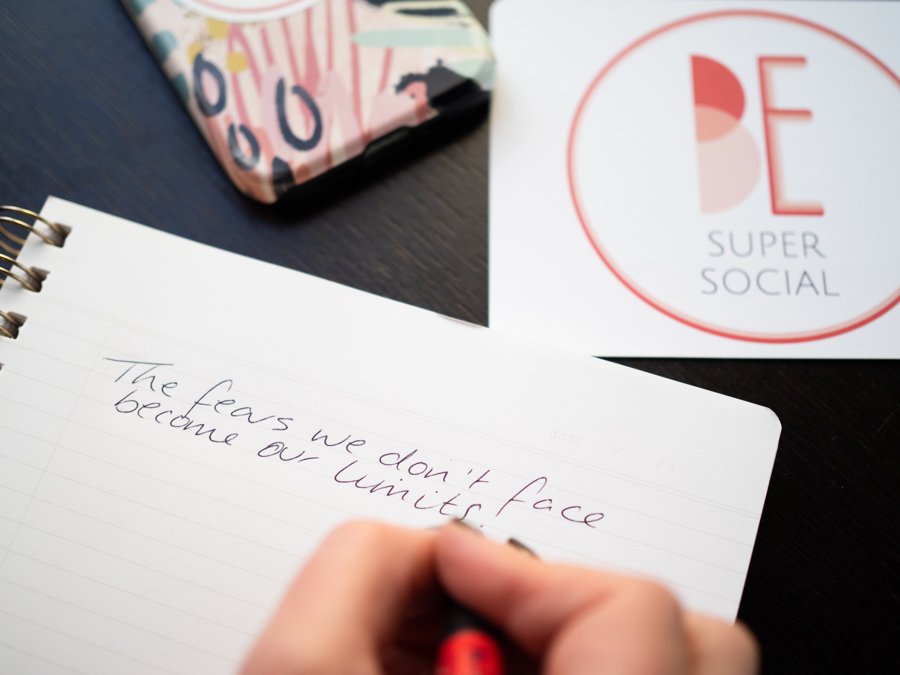 BE
SUPER
SOCIAL
date
The fears we don't face
become our limits.